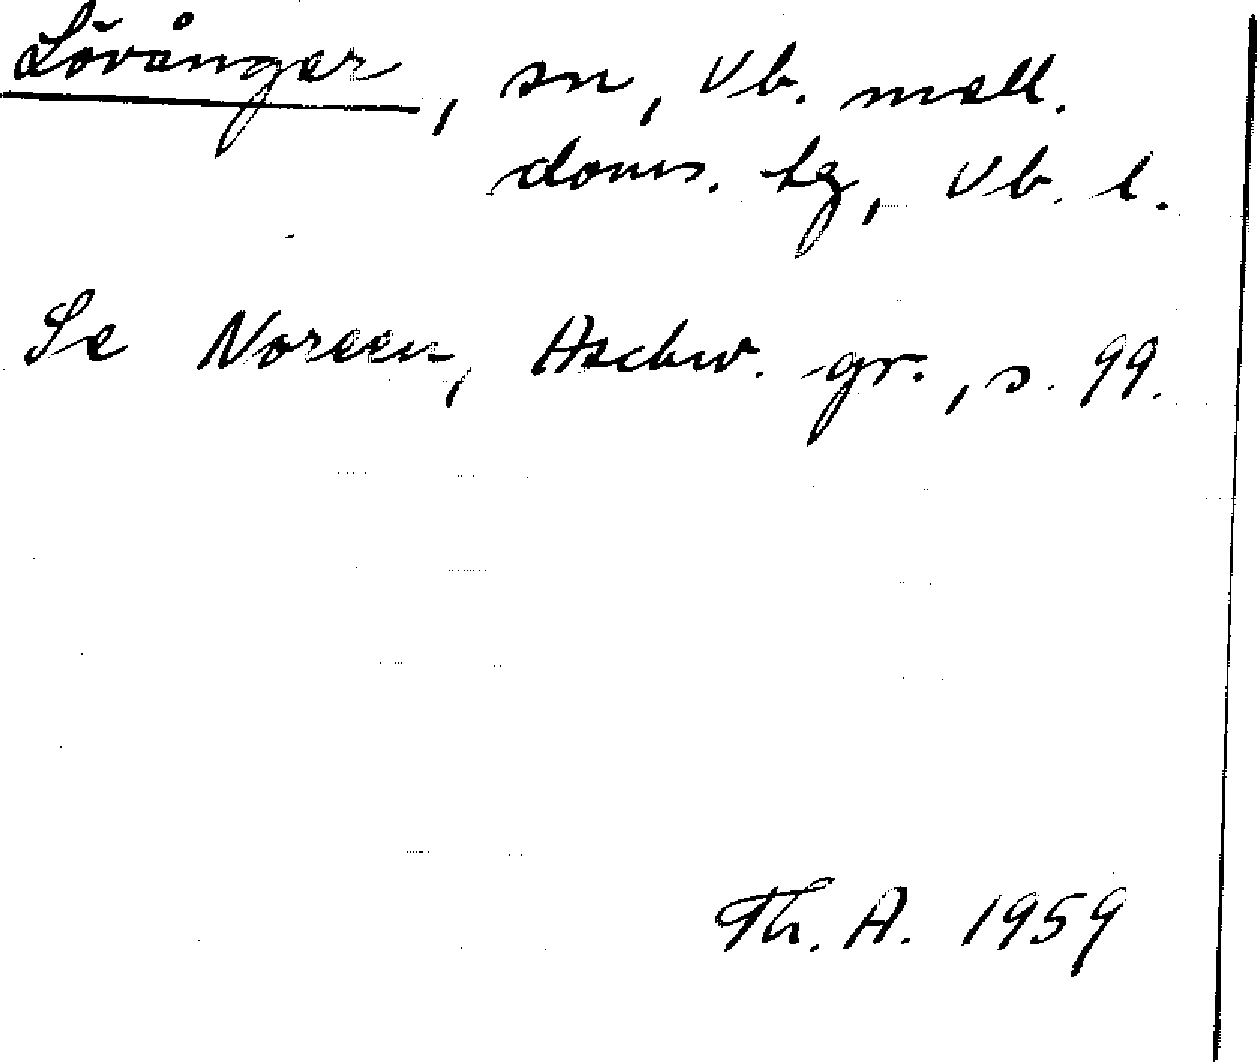 Lövånger, sn, Vb. mell.
doms. hg, Vb. l.
Se Noreen, Aschw. gr., s. 99.
Th. A. 1959